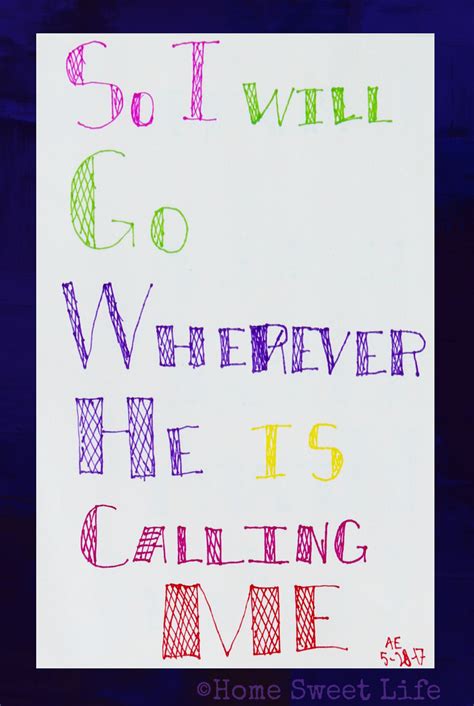 So I will
Go
Wherever
He is
Calling
Me
AE
5-28-17
©Home Sweet Life